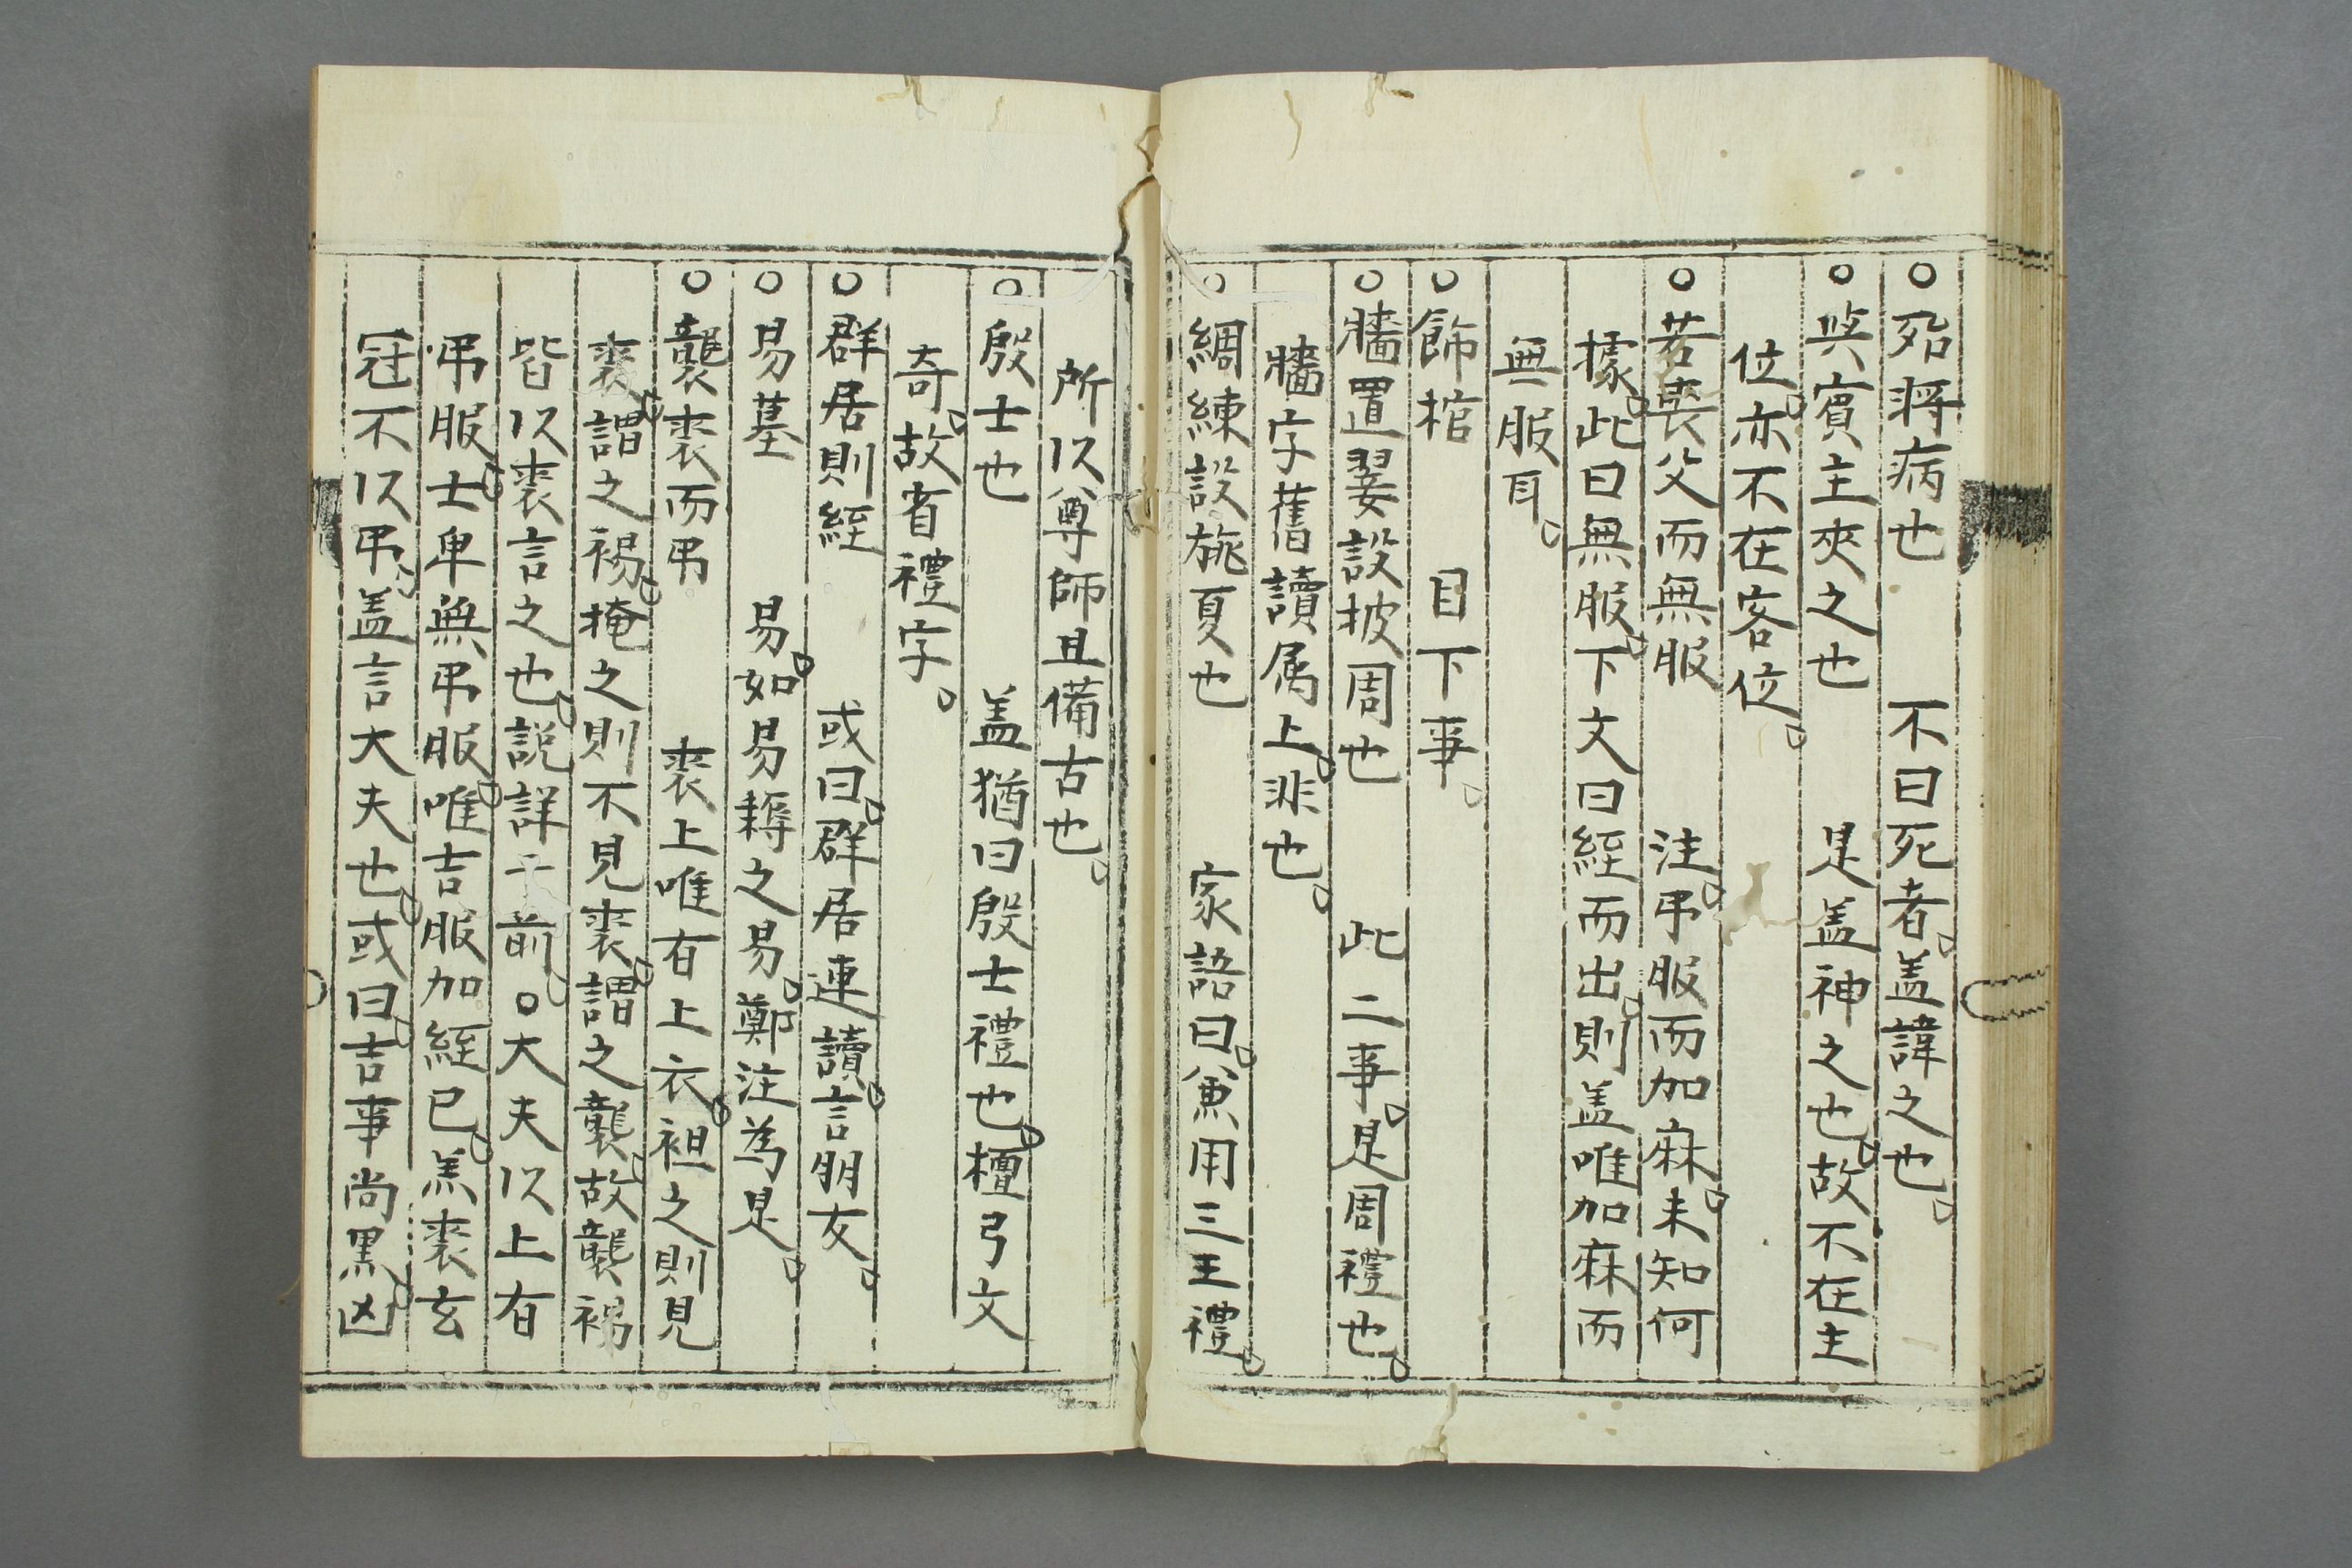 ○殆將病也　不曰死者。盖諱之也。
○與賓主夾之也　是盖神之也。故不在主
位。亦不在客位。
○若喪父而無服　注。弔服而加麻。未知何
據。此曰無服。下文曰絰而出。則盖唯加麻而
無服耳。
○飾棺　目下事。
○牆置翣設披周也　此二事。是周禮也。
牆字舊讀属上。非也。
○綢練設旐夏也　家語曰。兼用三王禮。
所以尊師且備古也。
○殷士也　盖猶曰殷士禮也。檀弓文
奇。故省禮字。
○群居則絰　或曰。群居連讀。言朋友。
○易墓　易。如易耨之易。鄭注為是。
○襲裘而弔　裘上唯有上衣。袒之則見
裘。謂之裼。掩之則不見裘。謂之襲。故襲裼
皆以裘言之也。説詳于前。○大夫以上有
弔服。士卑無弔服。唯吉服加絰已。羔裘玄
冠不以弔。盖言大夫也。或曰。吉事尚黒。凶